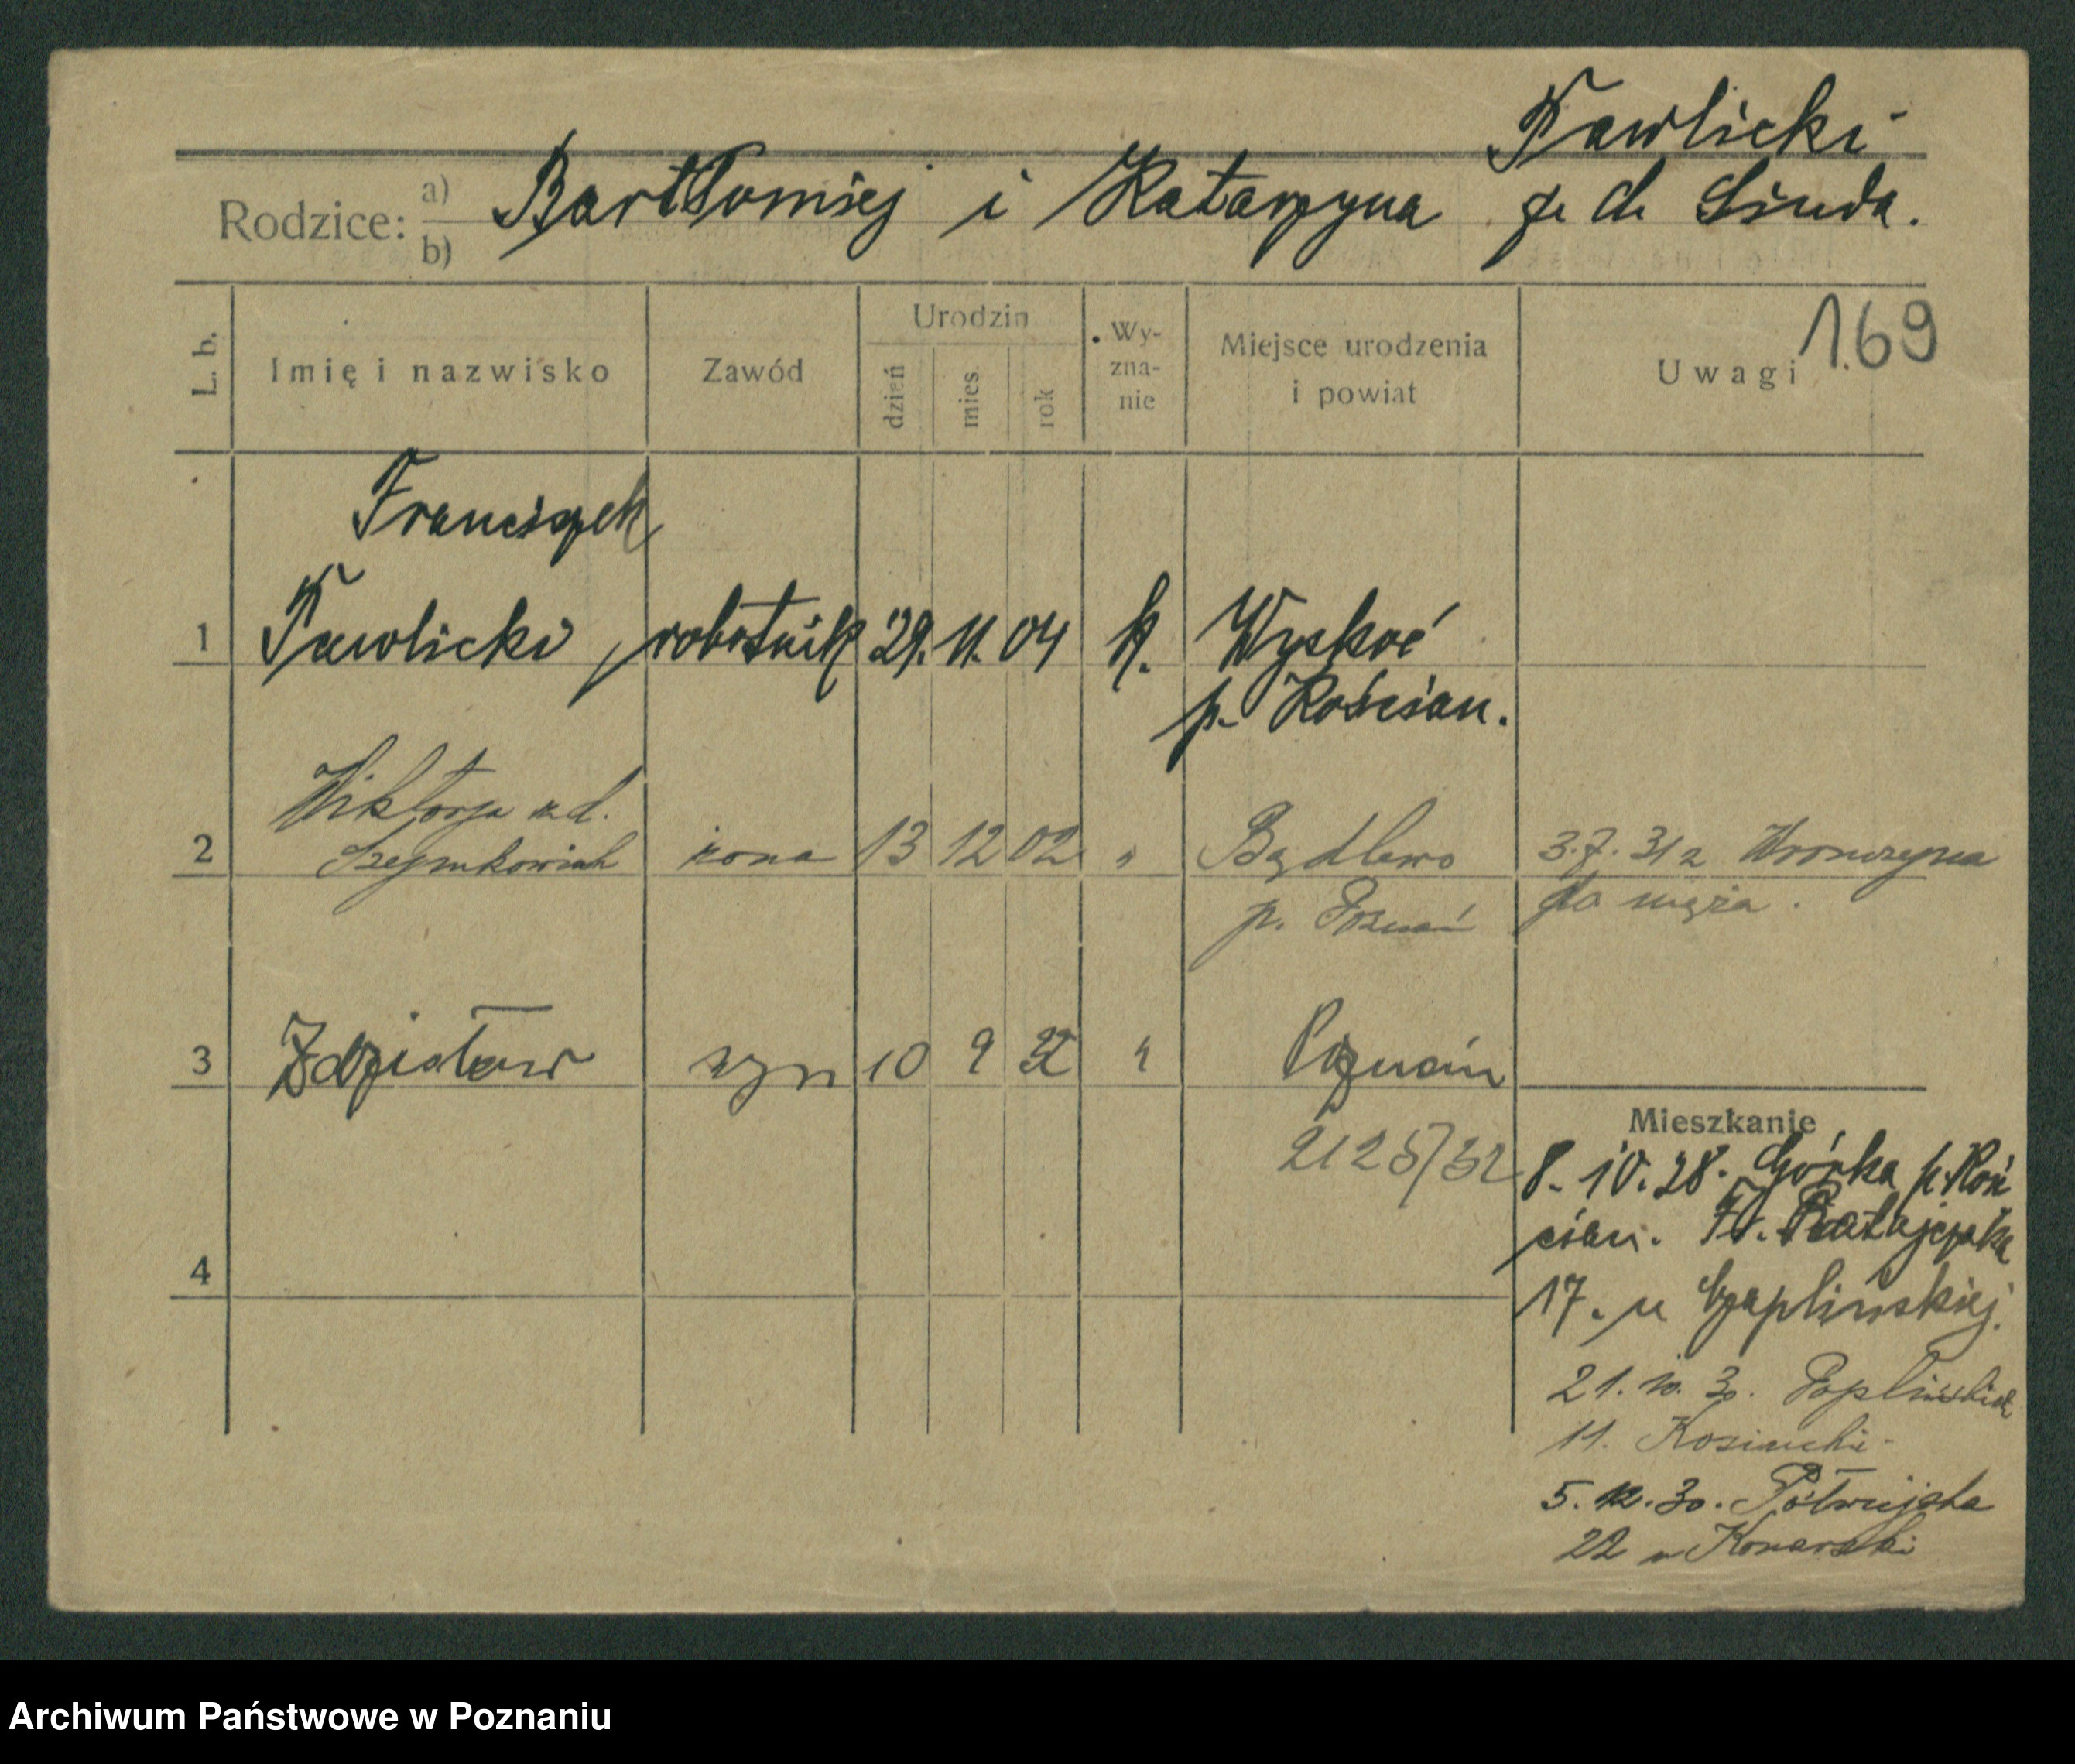 Pawlicki
Rodzice: a) b) Bartłomiej i Katarzyna z d. Linda.
169
L. b. Imię i nazwisko Zawód Urodzin dzień mies. rok Wy-zna-nie Miejsce urodzenia i powiat Uwagi
Franciszek
1 Pawlicki robotnik 29. 11. 04 k. Wyskoć
p. Kościan.
Wiktorja z d.
2 Szymkowiak żona 13 12 02 " Będlewo 3.7.31 z Wronczyna
p. Poznań do męża.
3 Zdzisław syn 10 9 32 " Poznań
Mieszkanie
2125/32 8. 10. 28. Górka p. Koś
cian. Fr. Ratajczaka
4
17. u Czaplińskiej.
21. 10. 30. Poplińskich
11.
5. 12. 30. Półwiejska
22 u Konarski
Archiwum Państwowe w Poznaniu